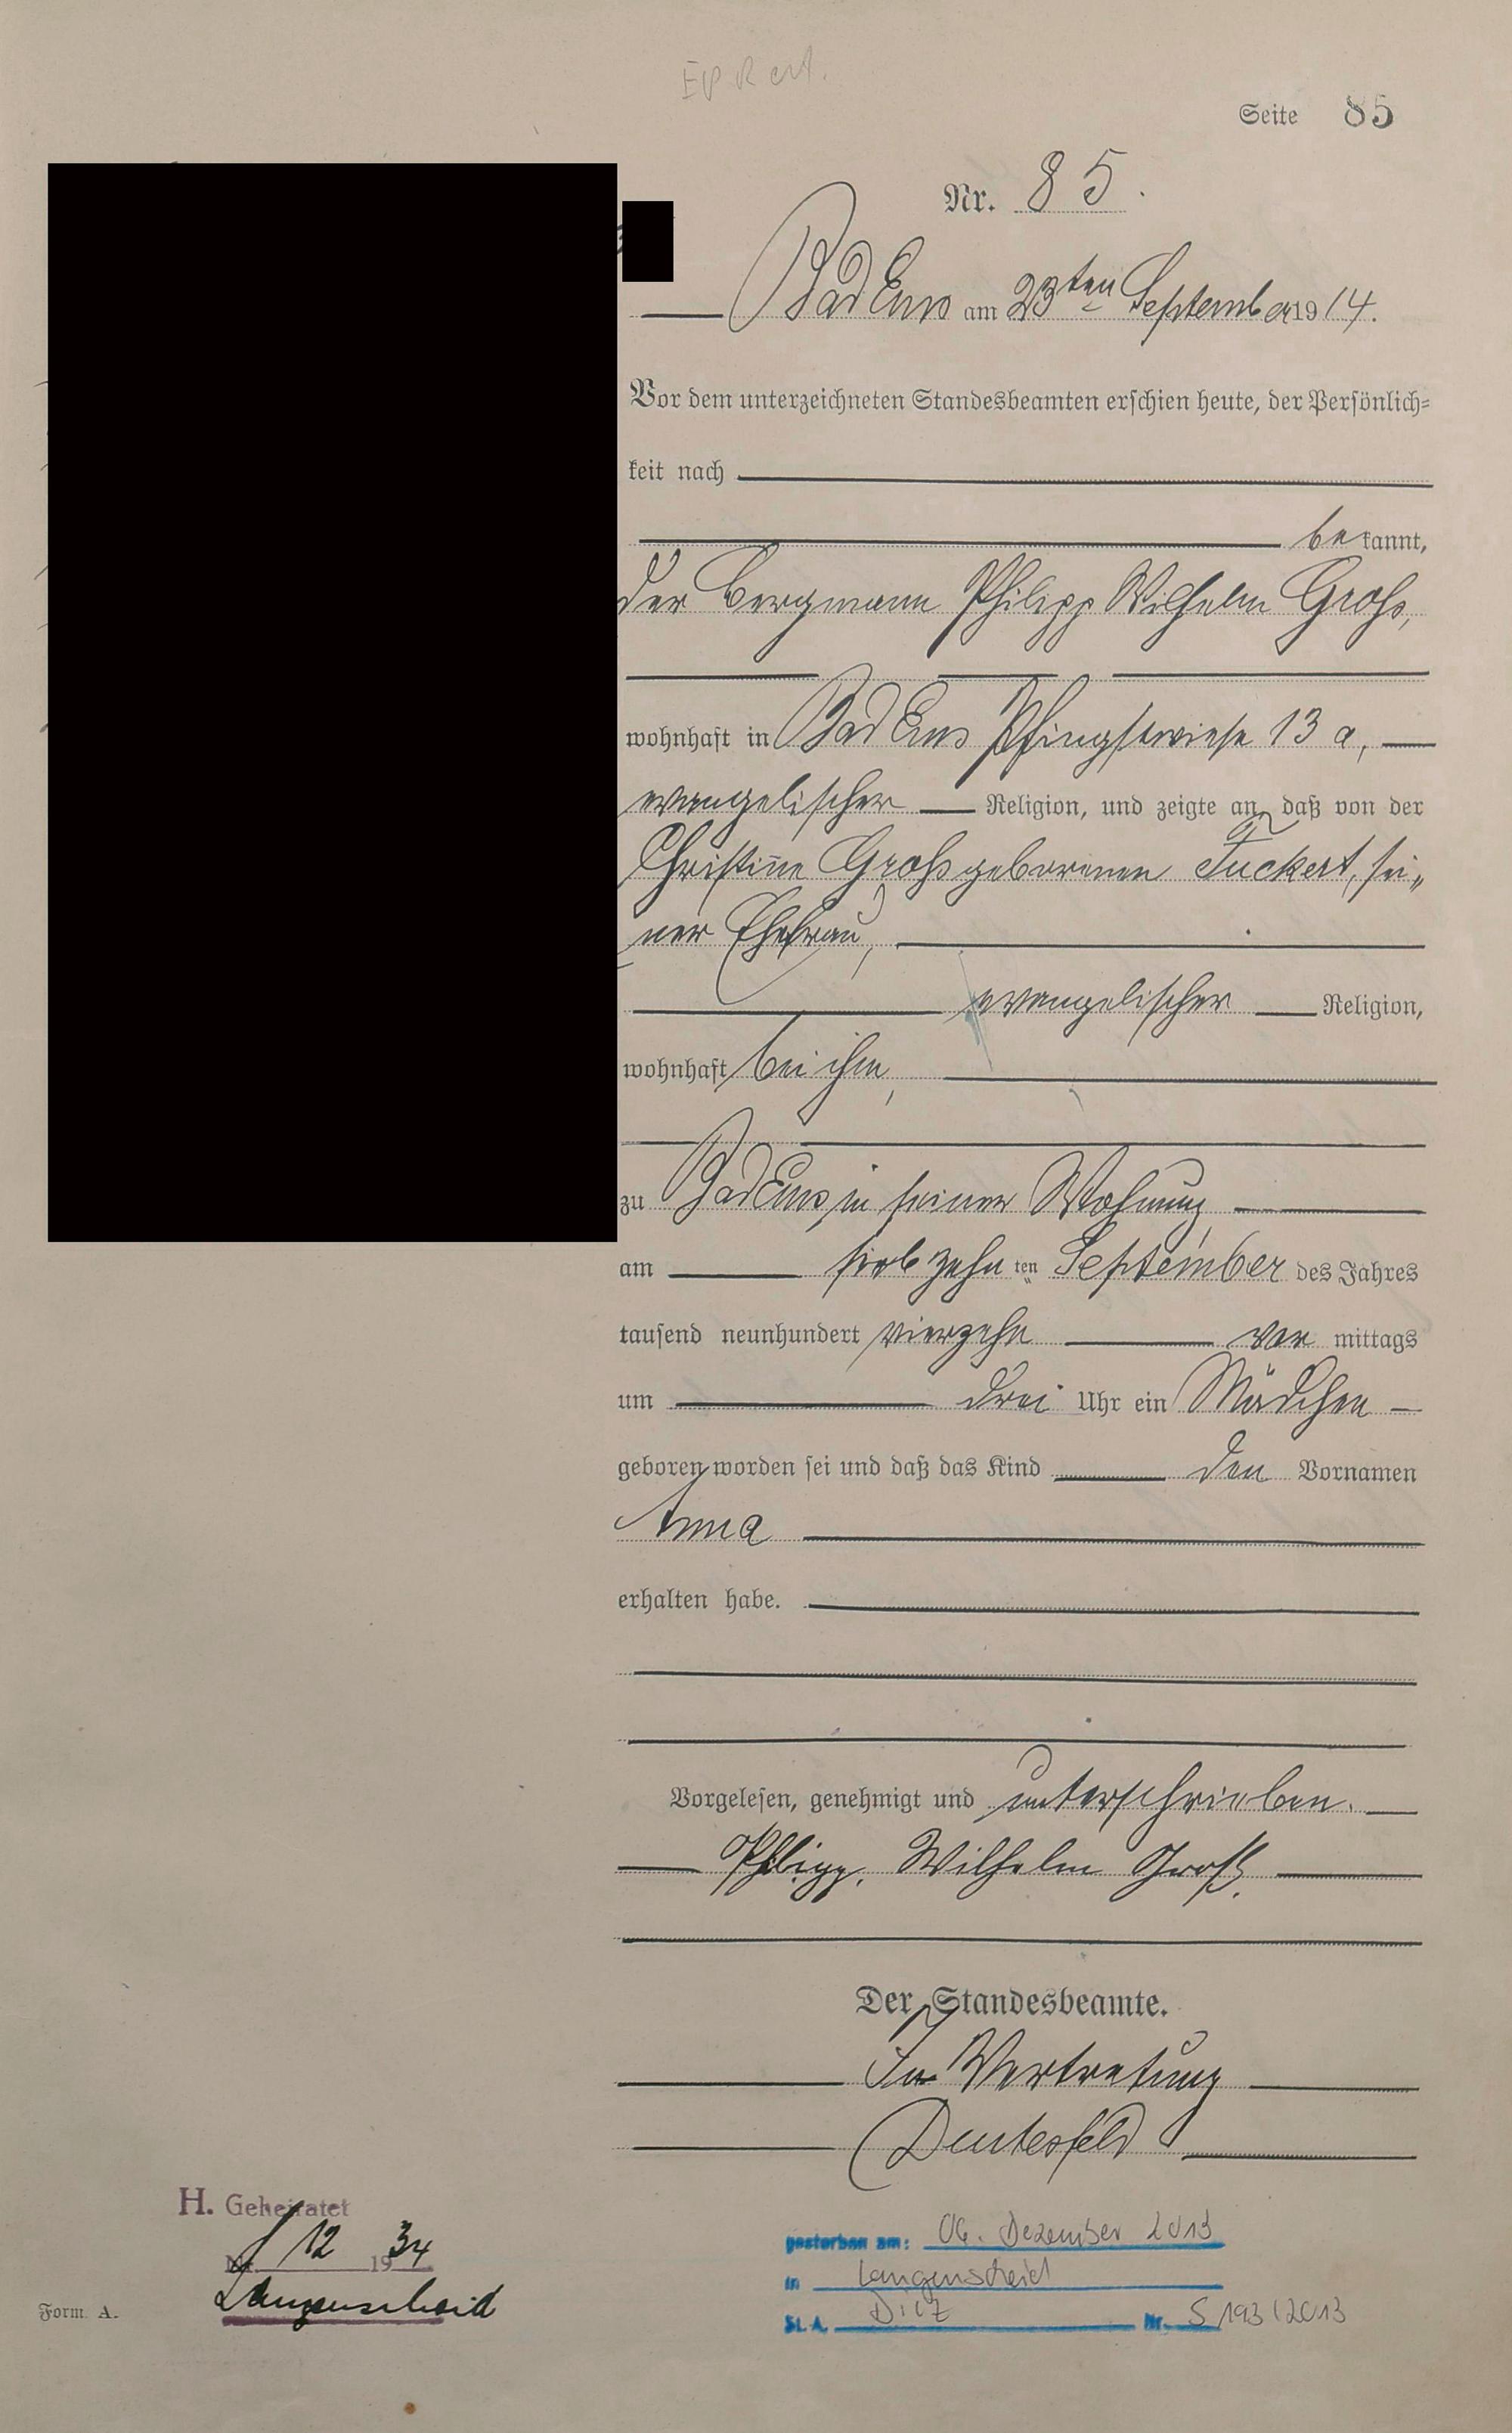 Seite 85
Nr. 85.
Bad Ems am 23ten September 1914.
Vor dem unterzeichneten Standesbeamten erschien heute, der Persönlich=
keit nach
bekannt,
der Bergmann Philipp Wilhelm Groß,
wohnhaft in Bad Ems Pfingstwiese 13 a,
evangelischer Religion, und zeigte an, daß von der
Christine Groß geborenen Tuckert, sei„
ner Ehefrau,
evangelischer Religion,
wohnhaft bei ihm,
zu Bad Ems in seiner Wohnung
am siebzehnten September des Jahres
tausend neunhundert vierzehn vor mittags
um drei Uhr ein Mädchen
geboren worden sei und daß das Kind den Vornamen
Anna
erhalten habe.
Vorgelesen, genehmigt und unterschrieben.
Philipp. Wilhelm Groß.
Der Standesbeamte.
In Vertretung
H. Geheiratet
Nr. 12 1934
Langenscheid
gestorben am: 06. Dezember 2013
in Langenscheid
St. A. Diez Nr. S 193/2013
Form. A.